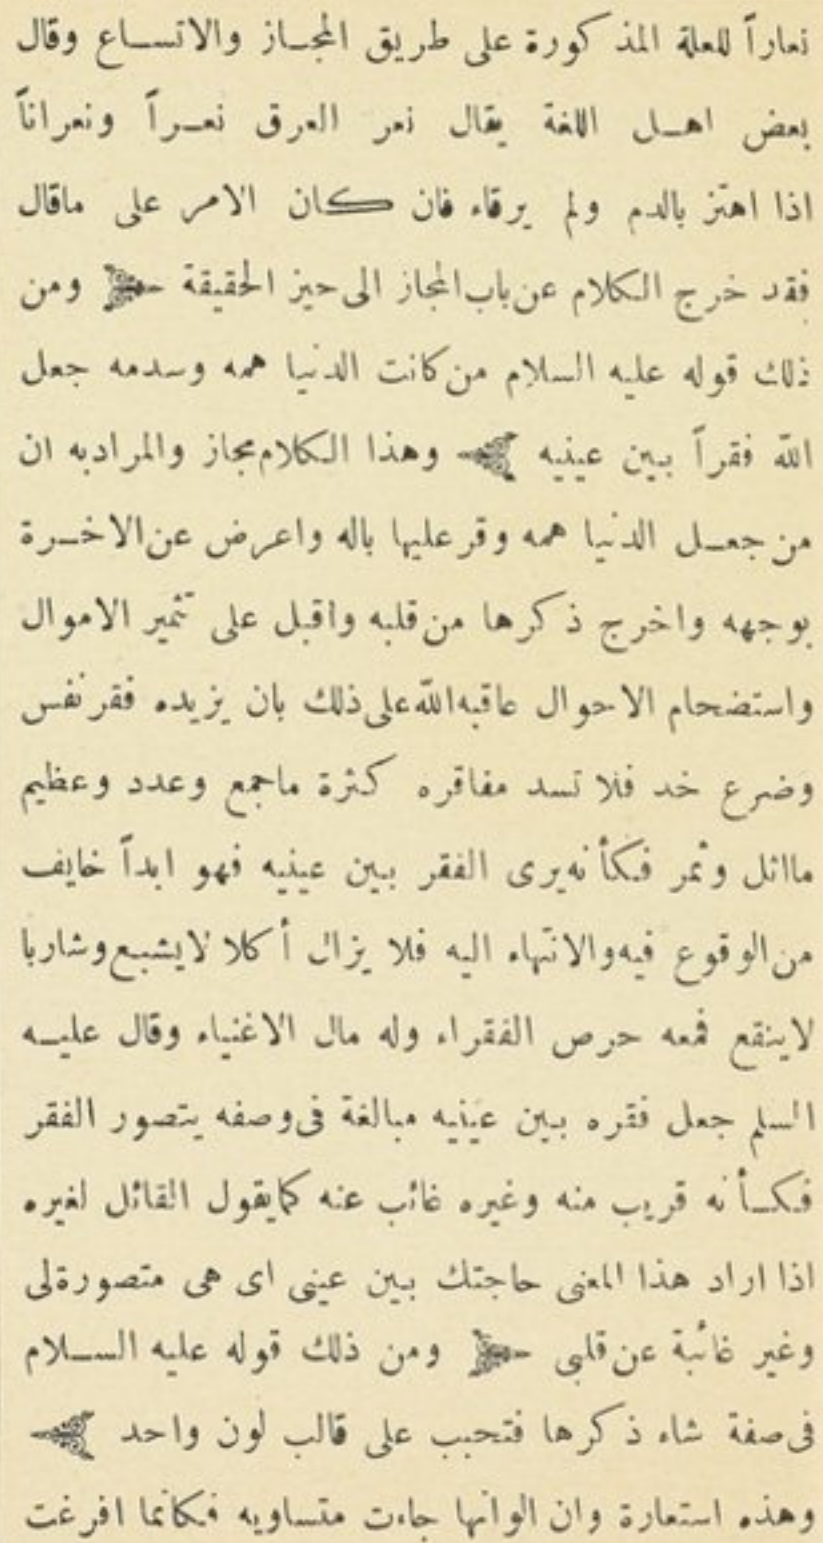 نعاراً للعلة المذكورة على طريق المجاز والاتساع وقال
بعض اهل اللغة يقال نعر العرق نعراً ونعراناً
اذا اهتز بالدم ولم يرقاء فان كان الامر على ماقال
فقد خرج الكلام عن باب المجاز الى حيز الحقيقة ومن
ذلك قوله عليه السلام من كانت الدنيا همه وسدمه جعل
الله فقراً بين عينيه وهذا الكلام مجاز والمراد به ان
من جعل الدنيا همه وقر عليها باله واعرض عن الاخرة
بوجهه واخرج ذكرها من قلبه واقبل على تثمير الاموال
واستضحام الاحوال عاقبه الله على ذلك بان يزيده فقر نفس
وضرع خد فلا تسد مفاقره كثرة ماجمع وعدد وعظيم
مااثل وثمر فكأنه يرى الفقر بين عينيه فهو ابداً خايف
من الوقوع فيه والانتهاء اليه فلا يزال أكلا لايشبع وشاربا
لاينقع فمعه حرص الفقراء وله مال الاغنياء وقال عليه
السلم جعل فقره بين عينيه مبالغة فى وصفه يتصور الفقر
فكأنه قريب منه وغيره غائب عنه كمايقول القائل لغيره
اذا اراد هذا المعنى حاجتك بين عينى اى هى متصورة لى
وغير غائبة عن قلبى ومن ذلك قوله عليه السلام
فى صفة شاء ذكرها فتحبب على قالب لون واحد
وهذه استعارة وان الوانها جاءت متساويه فكانما افرغت